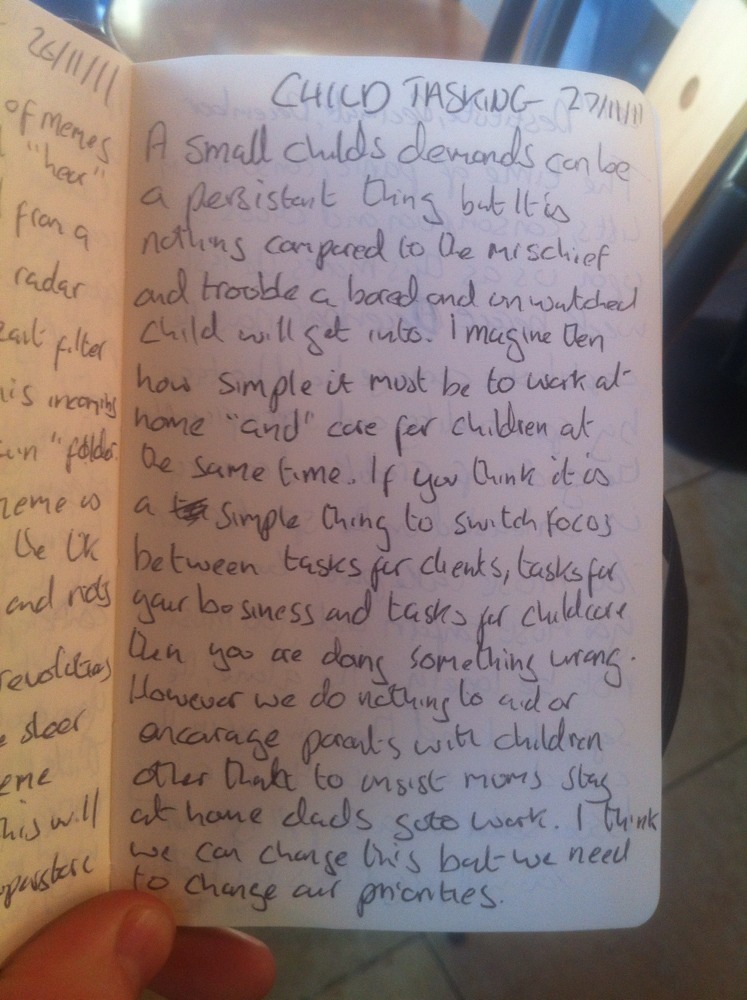 26/11/11
of memes
"hear"
from a
radar
filter
his incoming
"folder.
meme is
the UK
and nots
revolutions
sheer
eme
this will
CHILD TASKING 27/11/11
A small childs demands can be
a persistant thing but It is
nothing compared to the mischief
and trouble a bored and unwatched
child will get into. Imagine then
how simple it must be to work at
home "and" care for children at
the same time. If you think it is
a simple thing to switch focus
between tasks for clients, tasks for
your business and tasks for childcare
then you are doing something wrong.
However we do nothing to aid or
encourage parents with children
other that to insist moms stay
at home dads goto work. I think
we can change this but we need
to change our priorities.